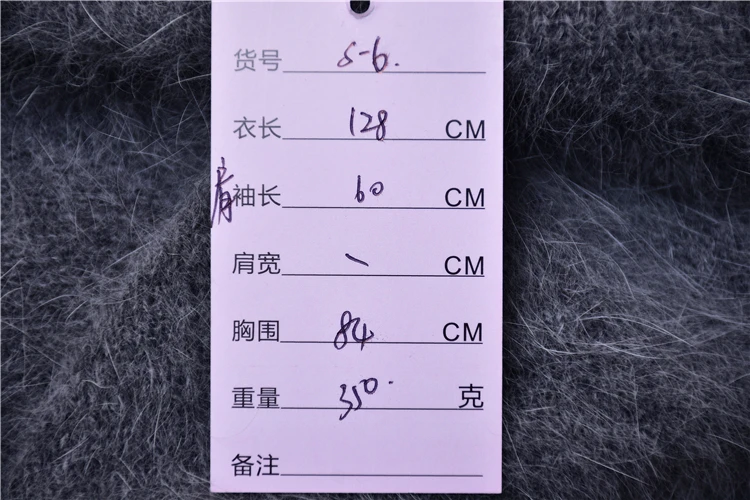 货号 S-6.
衣长 128 CM
肩袖长 60 CM
肩宽 \ CM
胸围 84 CM
重量 350. 克
备注